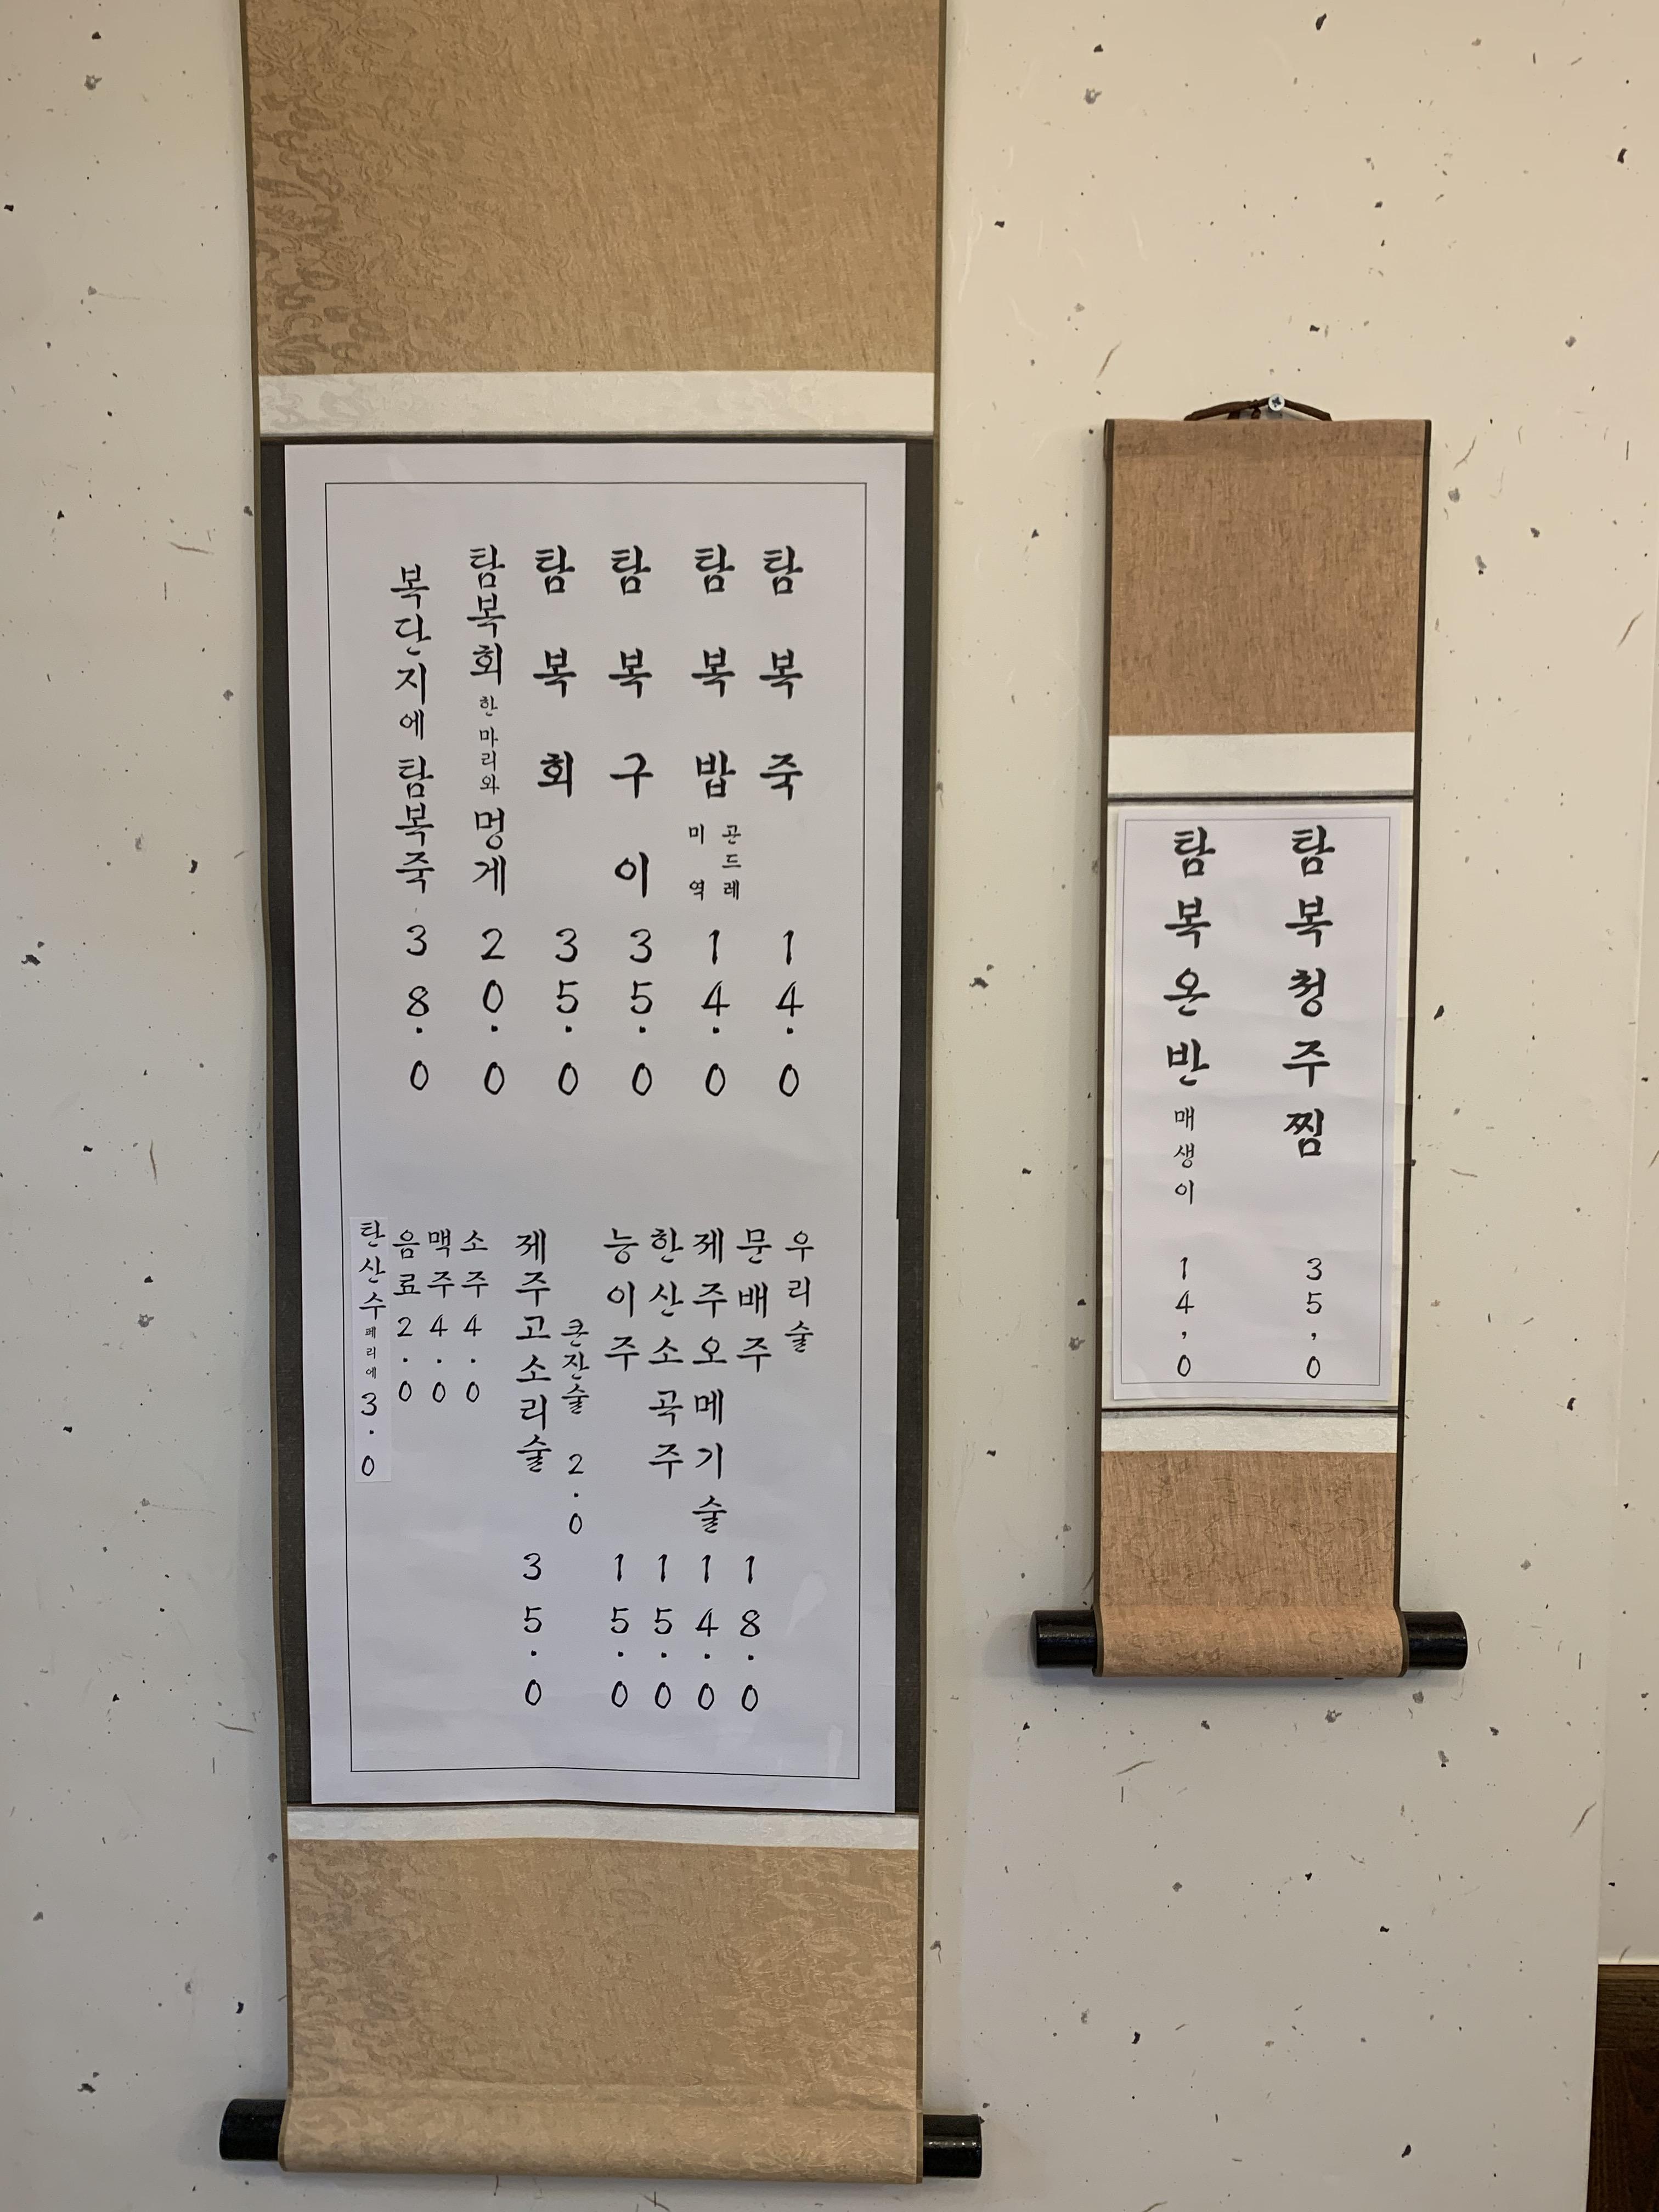 탐복죽 14.0
탐복밥 곤드레 미역 14.0
탐복구이 35.0
탐복회 35.0
탐복회 한마리와 멍게 20.0
복단지에 탐복죽 38.0
우리술
문배주 18.0
제주오메기술 14.0
한산소곡주 15.0
능이주 15.0
큰잔술 2.0
제주고소리술 35.0
소주 4.0
맥주 4.0
음료 2.0
탄산수 페리에 3.0
탐복청주찜 35,0
탐복온반 매생이 14,0